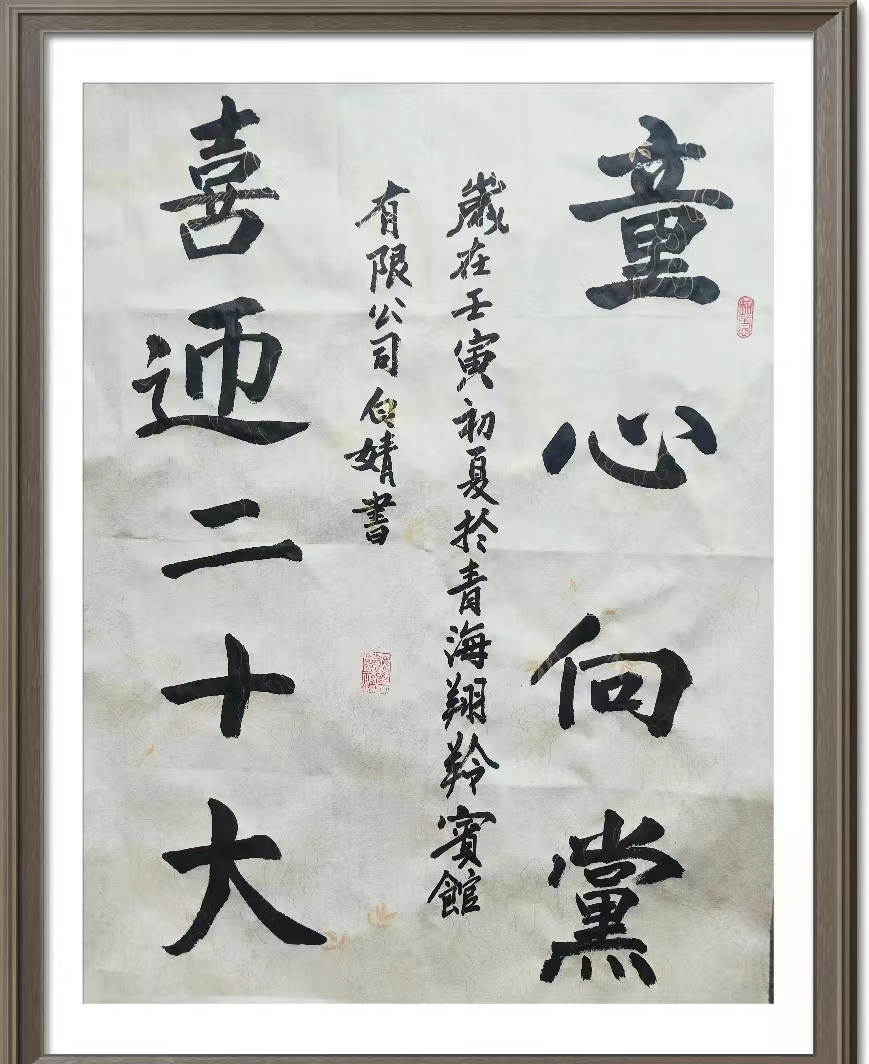 童心向黨
歲在壬寅初夏於青海翔羚賓館
有限公司白婧書
喜迎二十大